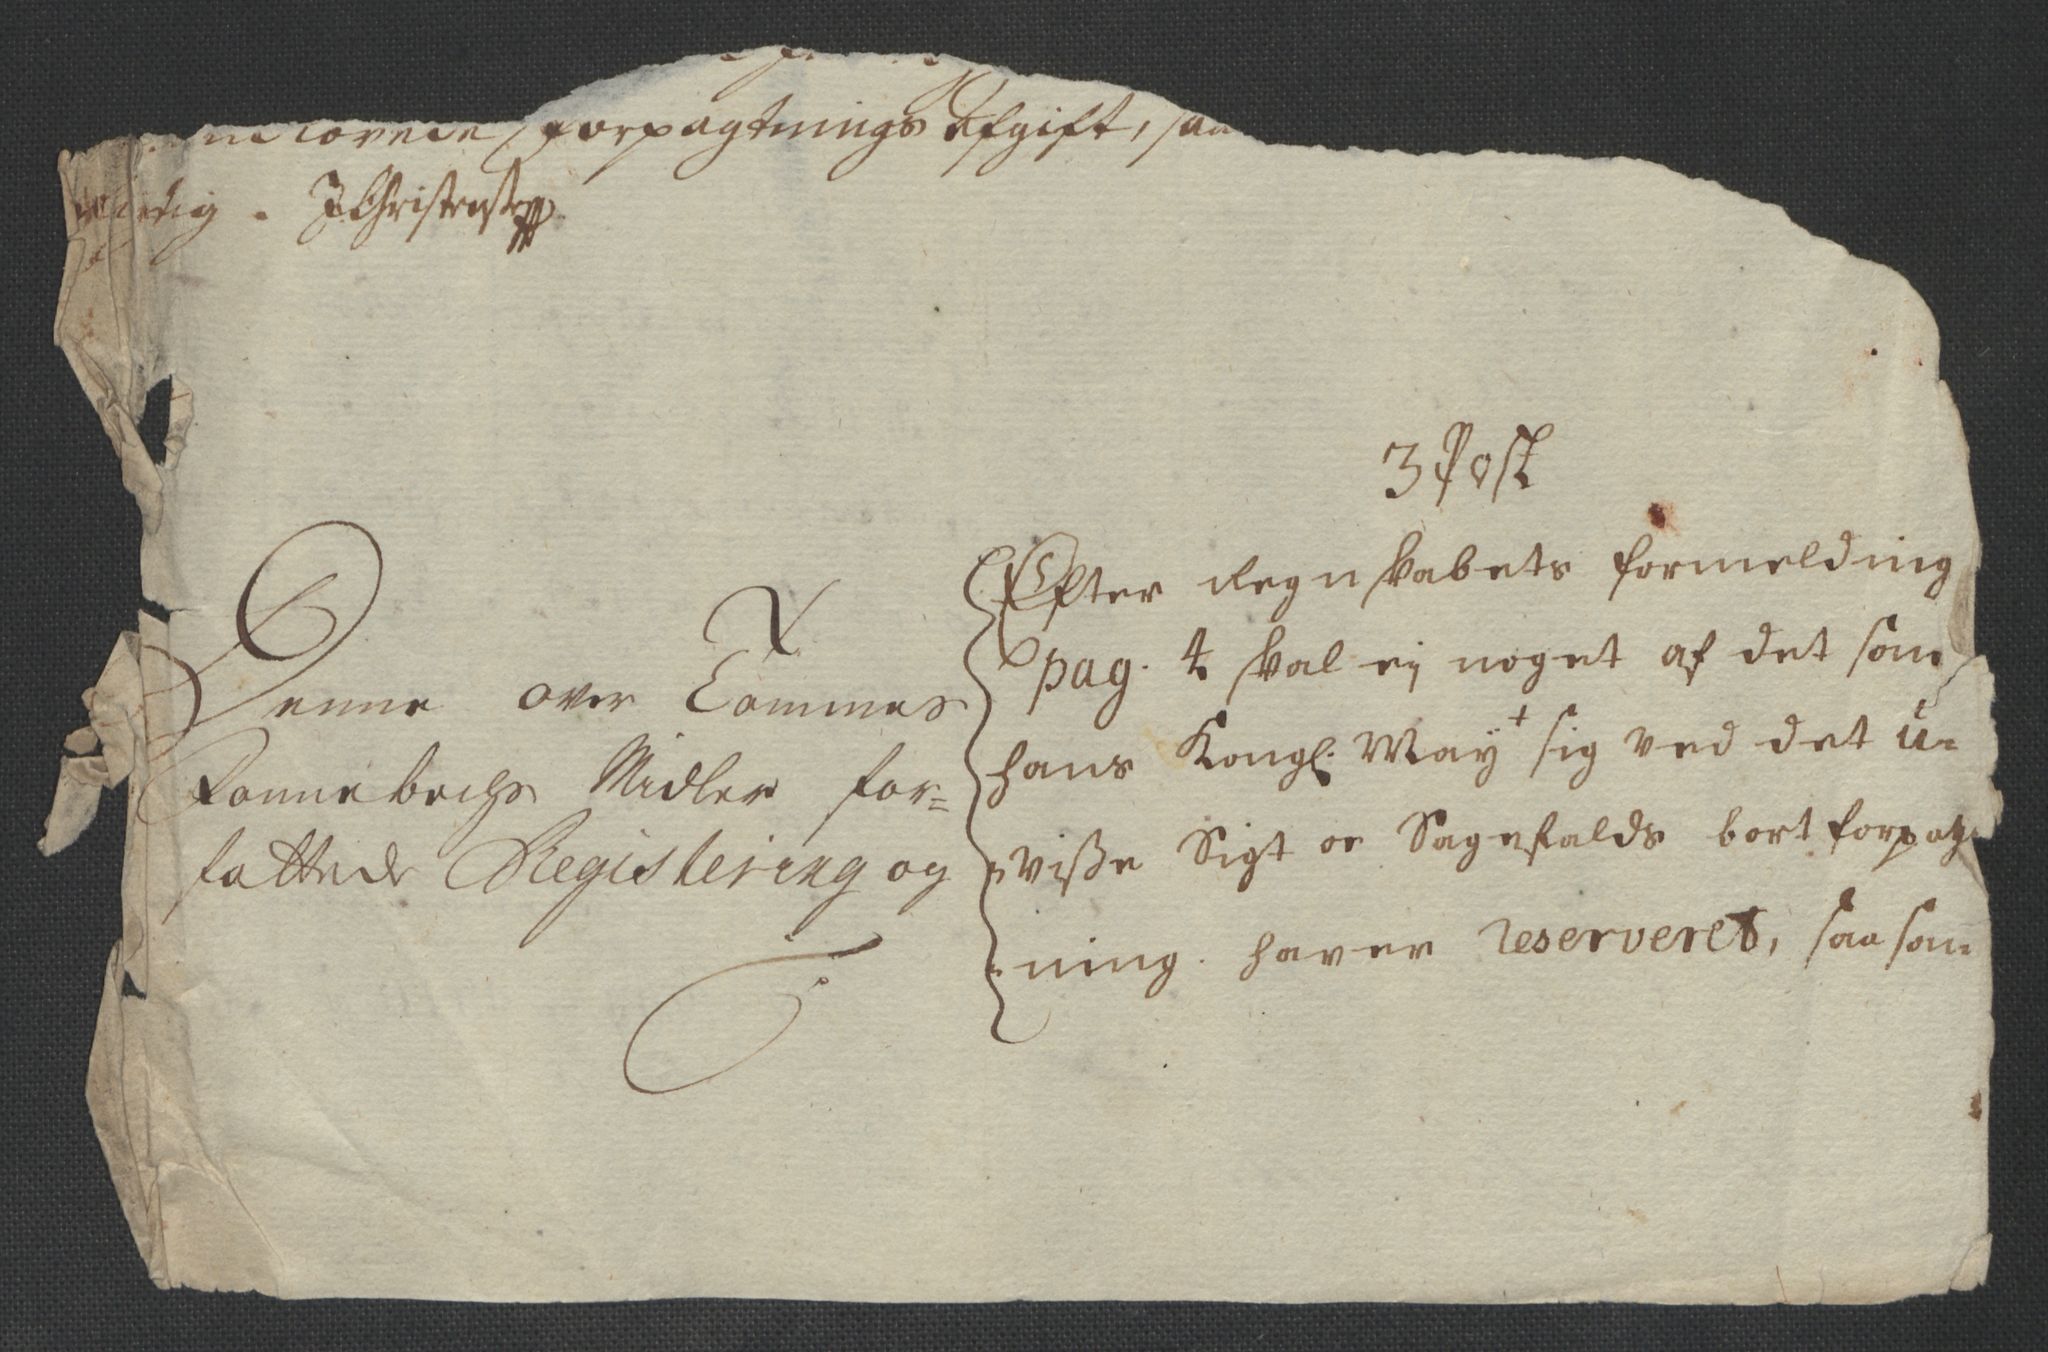 forpagtnings afgift, saa
J Christensen
3 Post
Denne over Tommes
Fonnebechs Midler for=
fattede Registering og
Efter Regnskabets formelding
pag. 4 skal ej noget af det som
hans Kongl. May+ sig ved det u-
visse Sigt oc Sagefalds bort forpagt
ning haver reserveret, saasom